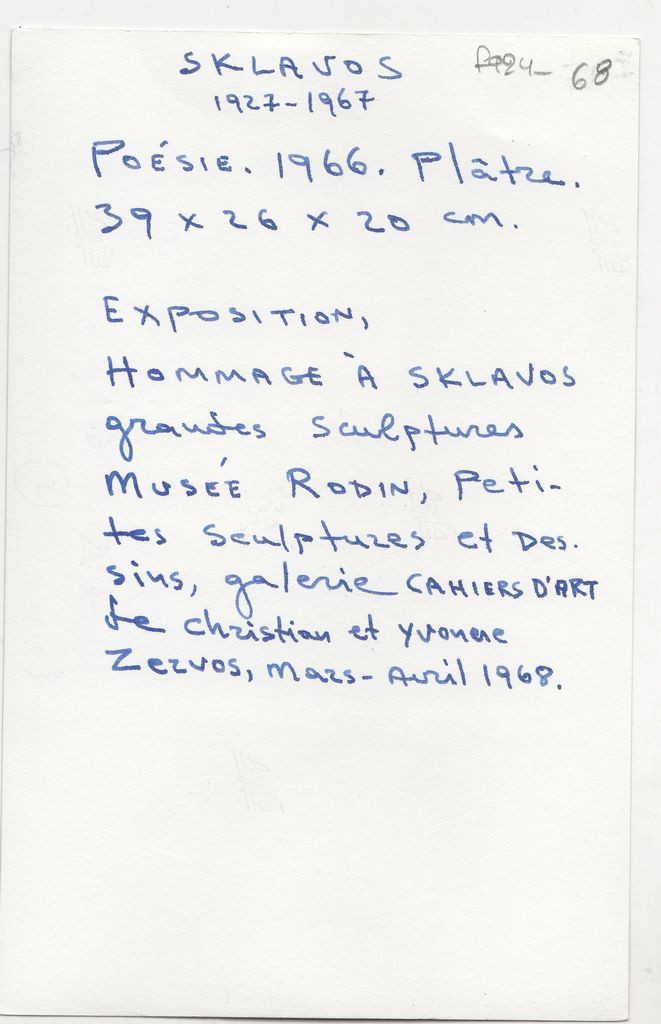 SKLAVOS 68
1927-1967
POÉSIE. 1966. Plâtre.
39 x 26 x 20 cm.
EXPOSITION,
HOMMAGE À SKLAVOS
grandes sculptures
MUSÉE RODIN, Peti-
tes sculptures et Des.
sins, galerie CAHIERS D'ART
de christian et yvonne
Zervos, Mars-Avril 1968.